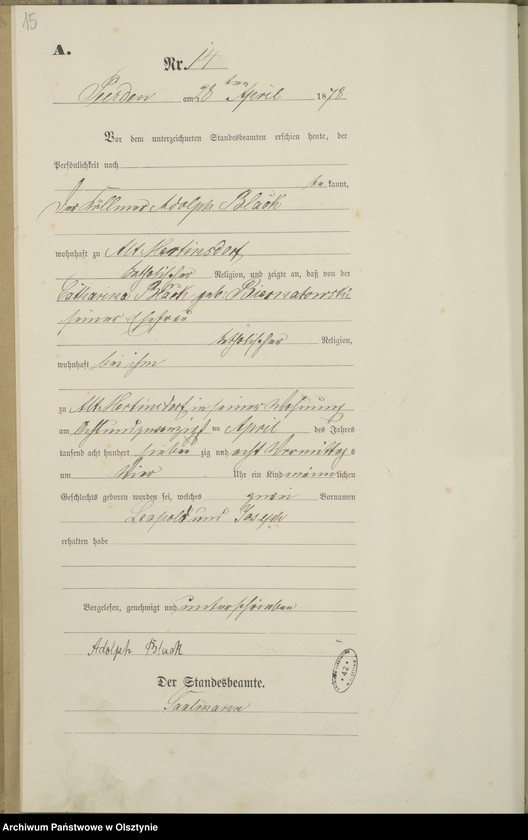 15
A.
Nr. 14
am 28 ten April 1878
Vor dem unterzeichneten Standesbeamten erschien heute, der
Persönlichkeit nach
be kannt,
Der Adolph Black
wohnhaft zu Alt Martinsdorf
katholischer Religion, und zeigte an, daß von der
Catharina Black geb. Biernatowski
seiner Ehefrau
katholischer Religion,
wohnhaft bei ihm
zu Alt Martinsdorf in seiner Wohnung
am Achtundzwanzigsten April des Jahres
tausend acht hundert sieben zig und acht Vormittag s
um vier Uhr ein Kind männlichen
Geschlechts geboren worden sei, welches zwei Vornamen
Leopold und Joseph
erhalten habe
Vorgelesen, genehmigt und unterschrieben
Adolph Black
Der Standesbeamte.
Archiwum Państwowe w Olsztynie